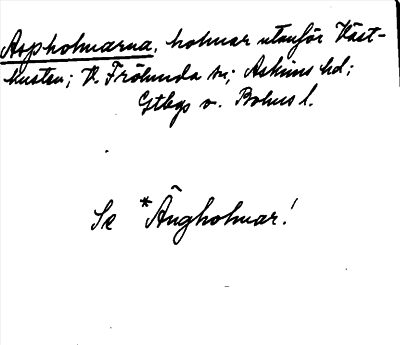 Aspholmarna, holmar utanför Väst-
kusten; V. Frölunda sn; Askims hd;
Gtbgs o. Bohus l.
Se *Ängholmar!